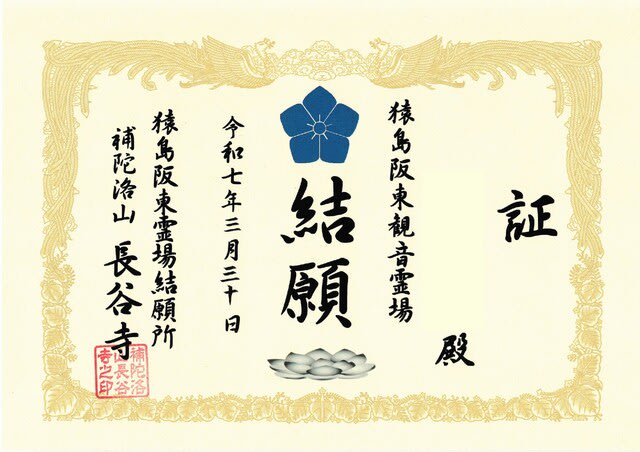 証
殿
猿島阪東観音霊場
結願
令和七年三月三十日
猿島阪東霊場結願所
補陀洛山 長谷寺
補陀洛
山長谷
寺之印